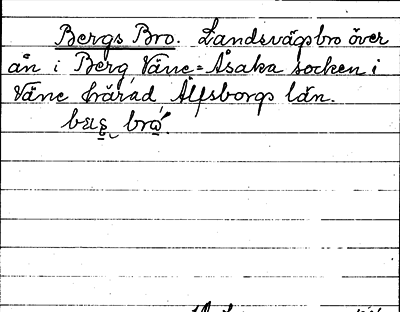 Bergs Bro. Landsvägsbro över
ån i Berg, Väne-Åsaka socken i
Väne härad, Älfsborgs län.